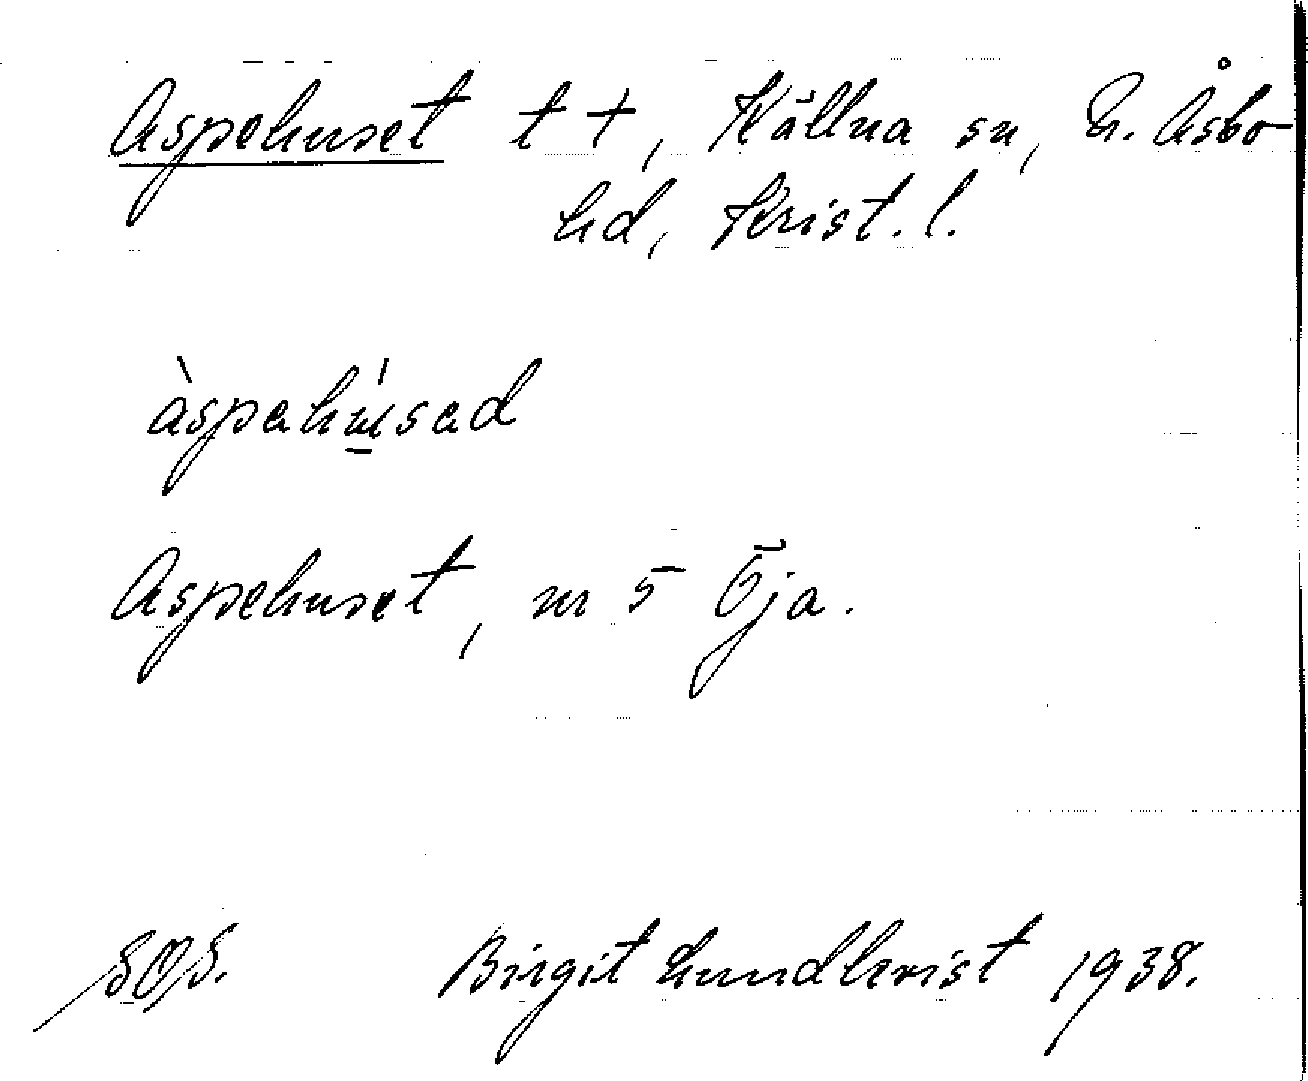 Aspehuset t †, Källna sn, N. Åsbo
hd, Krist. l.
àspahúsad
Aspehuset, nr 5 Öja.
SOS. Birgit Lundkvist 1938.